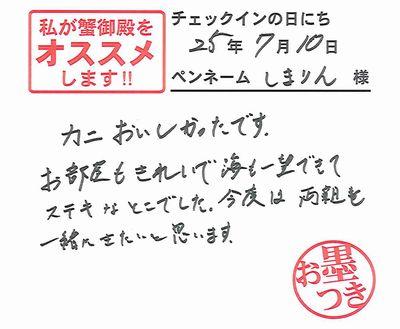 私が蟹御殿を
オススメ
します!!
チェックインの日にち
25年7月10日
ペンネーム しまりん 様
カニおいしかったです。
お部屋もきれいで海も一望できて
ステキなとこでした。今度は両親を
一緒にきたいと思います。
お墨つき